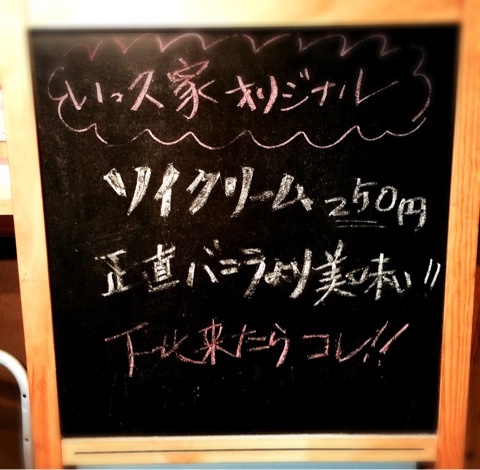 いっ久家 オリジナル
ソイクリーム 250円
正直バニラより美味い!!
下北来たらコレ!!